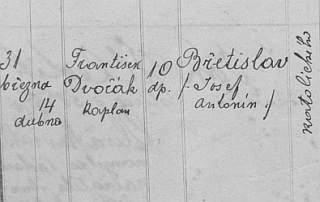 31
března
14
dubna
František
Dvořák
kaplan
10
dp.
Břetislav
/: Josef
Antonín :/
katolického